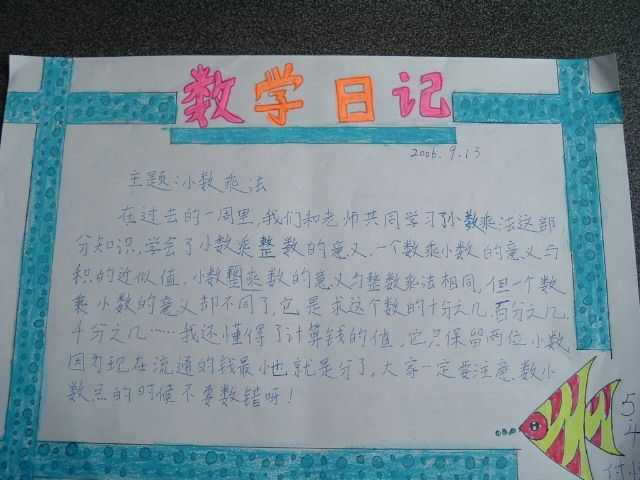 数学日记
2006.9.13
主题:小数乘法
在过去的一周里,我们和老师共同学习了小数乘法这部
分知识,学会了小数乘整数的意义,一个数乘小数的意义与
积的近似值,小数乘整数的意义与整数乘法相同,但一个数
乘小数的意义却不同了,它是求这个数的十分之几,百分之几,
千分之几……我还懂得了计算钱的值,它只保留两位小数,
因为现在流通的钱最小也就是分了,大家一定要注意,数小
数点的时候不要数错呀!
5